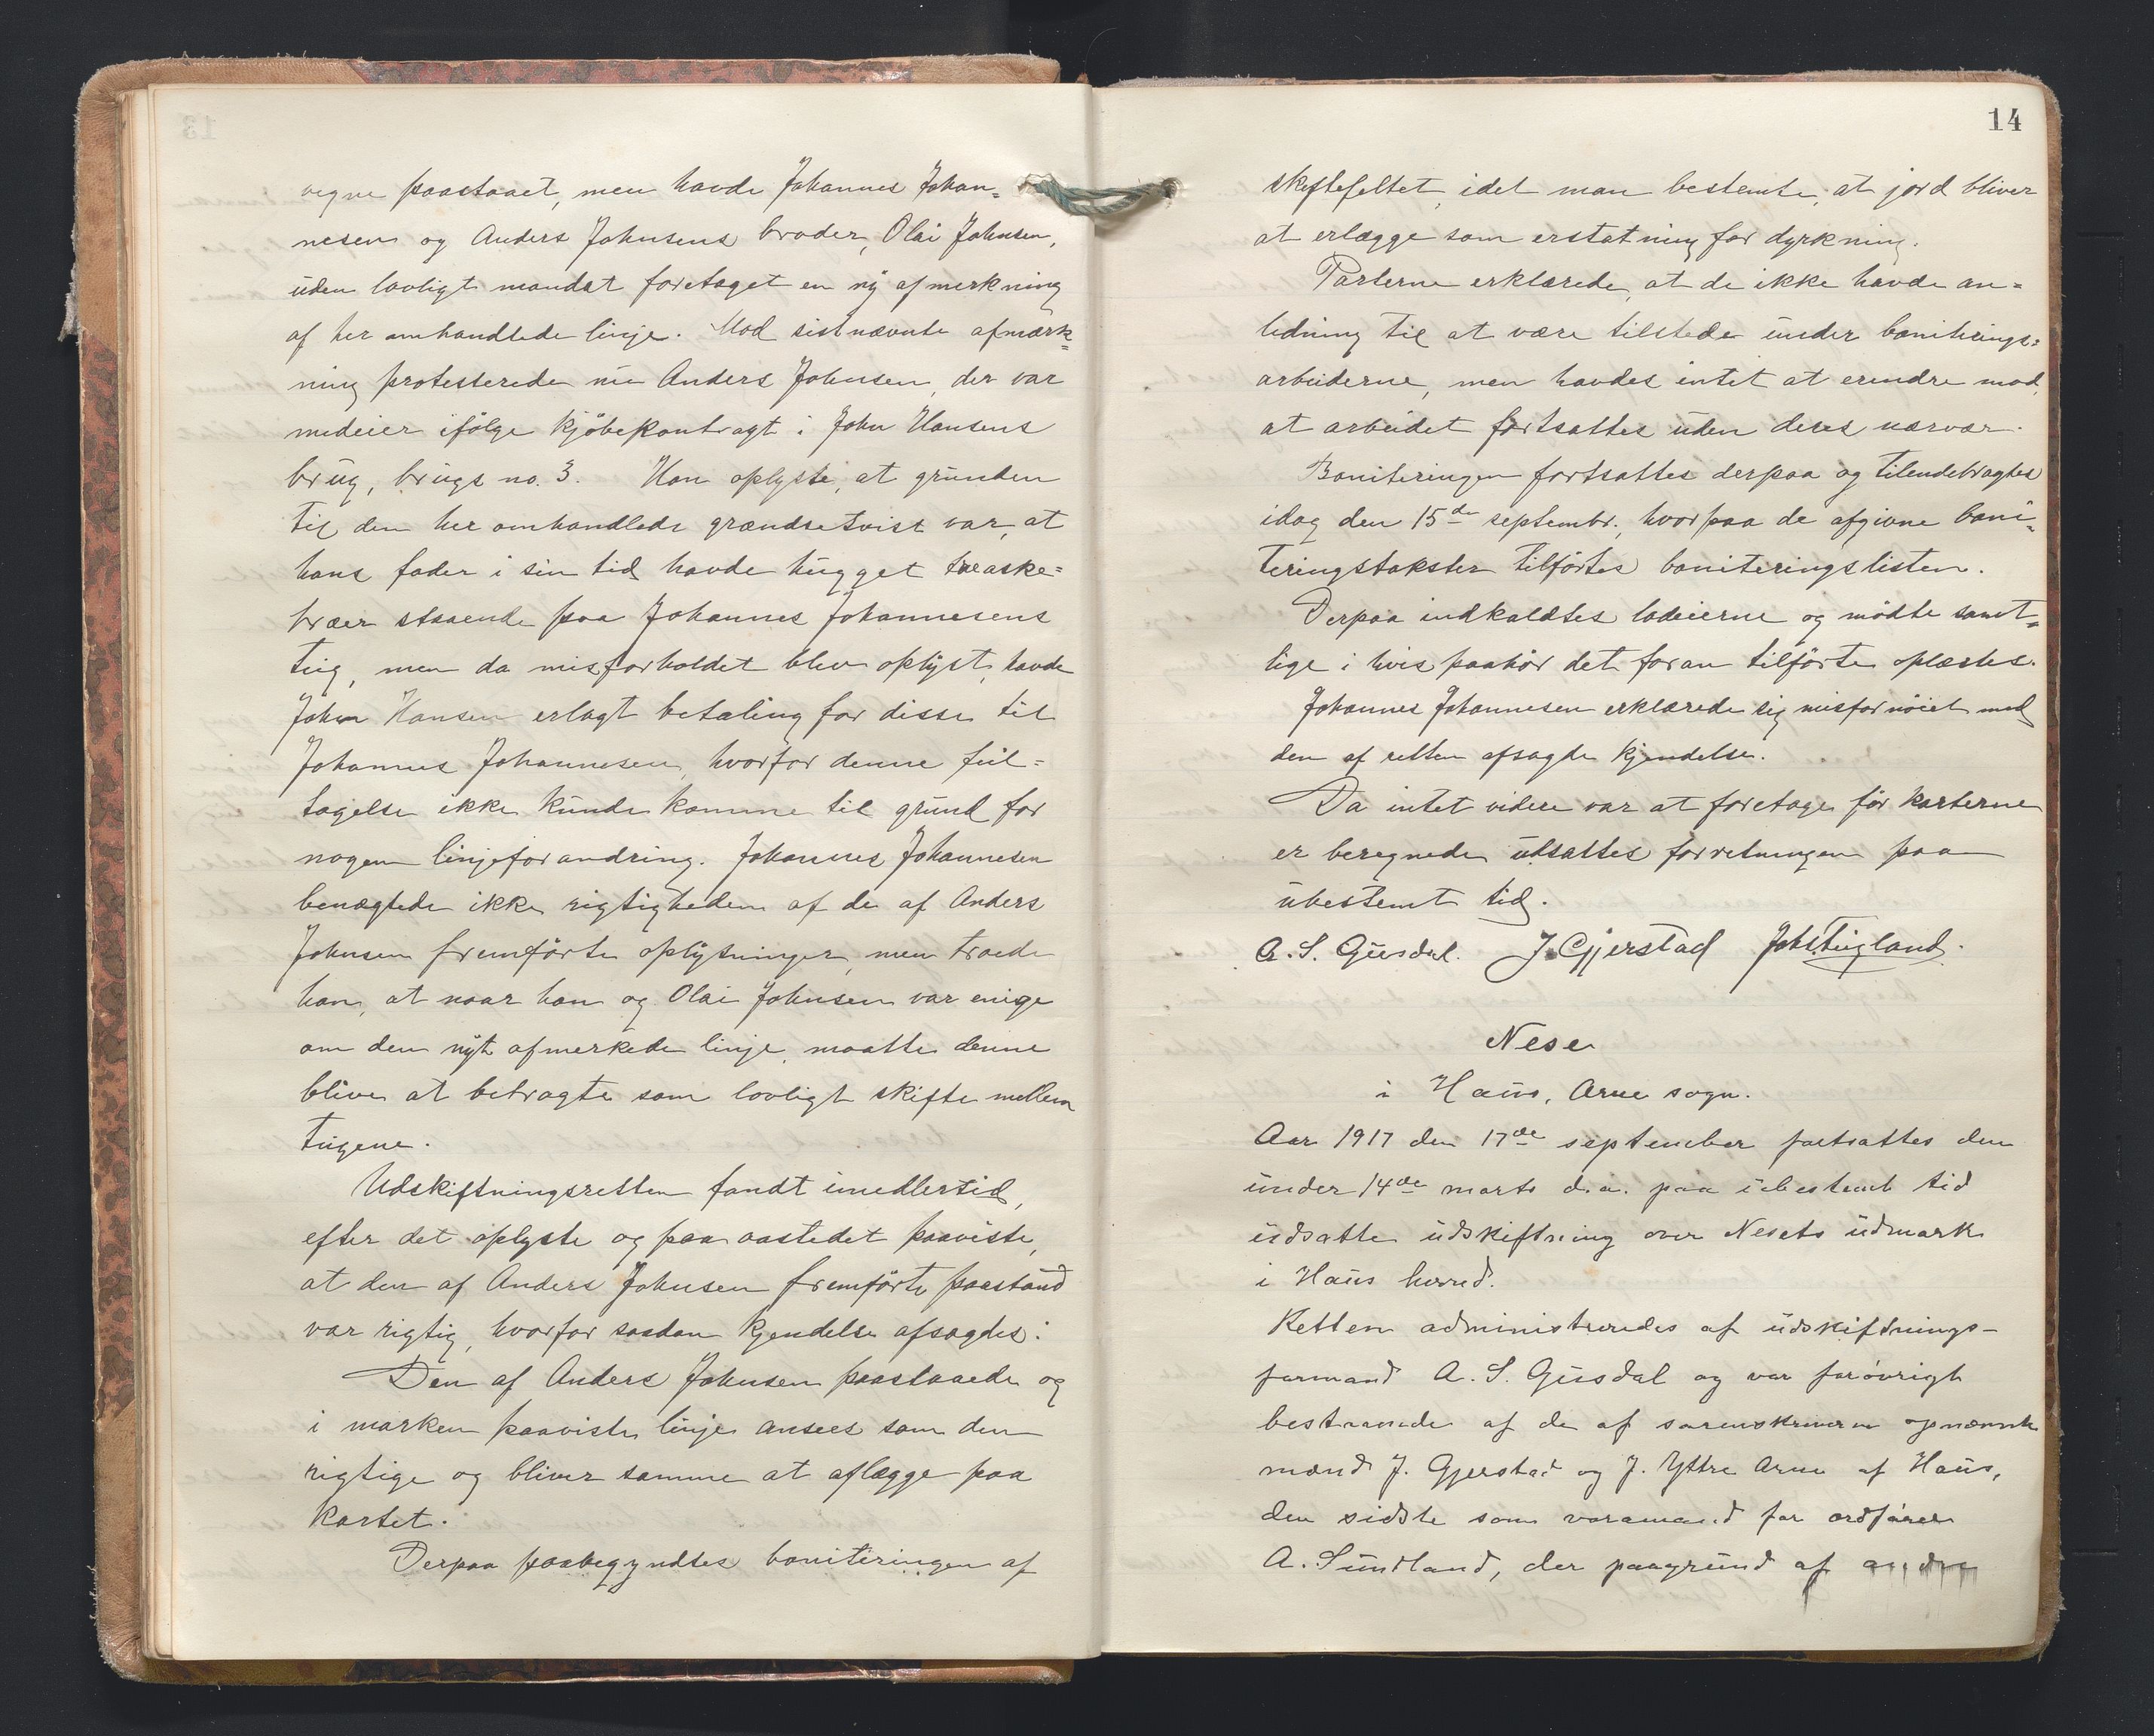 vegne paastaaet, men havde Johannes Johan=
nesen og Anders Johnsens broder, Olai Johnsen,
uden lovligt mandat foretaget en ny afmerkning
af her omhandlede linje. Mod sistnævnte afmærk=
ning protesterede nu Anders Johnsen, der var
medeier ifölge kjöbekontrakt i John Hansens
brug, brugs no. 3. Han oplyste, at grunden
til den her omhandlede grændsetvist var, at
hans fader i sin tid havde hugget tre aske=
træer staaende paa Johannes Johannesens
teig, men da misforholdet blev oplyst, havde
John Hansen erlagt betaling for disse til
Johannes Johannesen, hvorfor denne feil=
tagelse ikke kunde komme til grund for
nogen linjeforandring. Johannes Johannesen
benægtede ikke rigtigheden af de af Anders
Johnsen fremförte oplysninger, men troede
han, at naar han og Olai Johnsen var enige
om den nyt afmerkede linje, maatte denne
blive at betragte som lovligt skifte mellem
teigene.
Udskiftningsretten fandt imedlertid,
efter det oplyste og paa aastedet paaviste,
at den af Anders Johnsen fremförte paastand
var rigtig, hvorfor saadan kjendelse afsagdes:
Den af Anders Johnsen paastaaede og
i marken paaviste linje ansees som den
rigtige og bliver samme at aflægge paa
kartet.
Derpaa paabegyndtes boniteringen af
14
skiftefeltet, idet man bestemte, at jord bliver
at erlægge som erstatning for dyrkning.
Parterne erklærede, at de ikke havde an=
ledning til at være tilstede under boniterings=
arbeiderne, men havdes intet at erindre mod,
at arbeidet fortsattes uden deres nærvær.
Boniteringen fortsattes derpaa og tilendebragtes
idag den 15de septembr., hvorpaa de afgivne boni=
teringstakster tilförtes boniteringslisten.
Derpaa indkaldtes lodeierne og mödte samt=
lige i hvis paahör det foran tilförte oplæstes.
Johannes Johannesen erklærede sig misfornöiet med
den af retten afsagde kjendelse.
Da intet videre var at foretage för karterne
er beregnede udsattes forretningen paa
ubestemt tid.
A. S. Gusdal. J. Gjerstad Johs Teigland.
Nese
i Haus, Arne sogn.
Aar 1917 den 17de september fortsattes den
under 14de marts d.a. paa ubestemt tid
udsatte udskiftning over Nesets udmark
i Haus herred.
Retten administreredes af udskiftnings-
formand A. S. Gusdal og var forövrigt
bestaaende af de af sorenskriveren opnævnte
mænd J. Gjerstad og J. Yttre Arne af Haus,
den sidste som varamand for ordförer
A. Sundland, der paagrund af andre